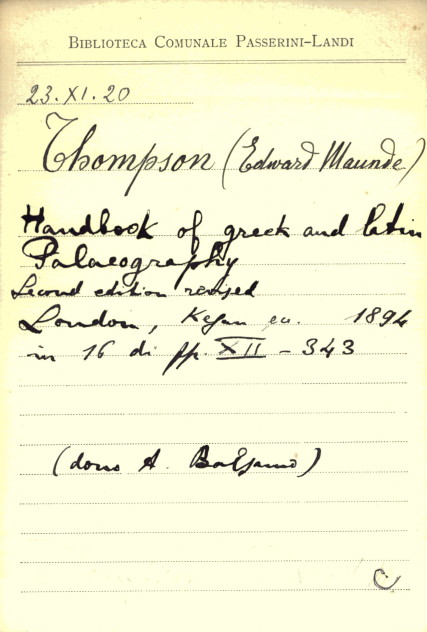 BIBLIOTECA COMUNALE PASSERINI-LANDI
23.XI.20
Thompson (Edward Maunde)
Handbook of greek and latin
Palaeography
Second edition revised
London, Kegan ec. 1894
in 16 di pp. XII - 343
(dono A. Balsamo)
C